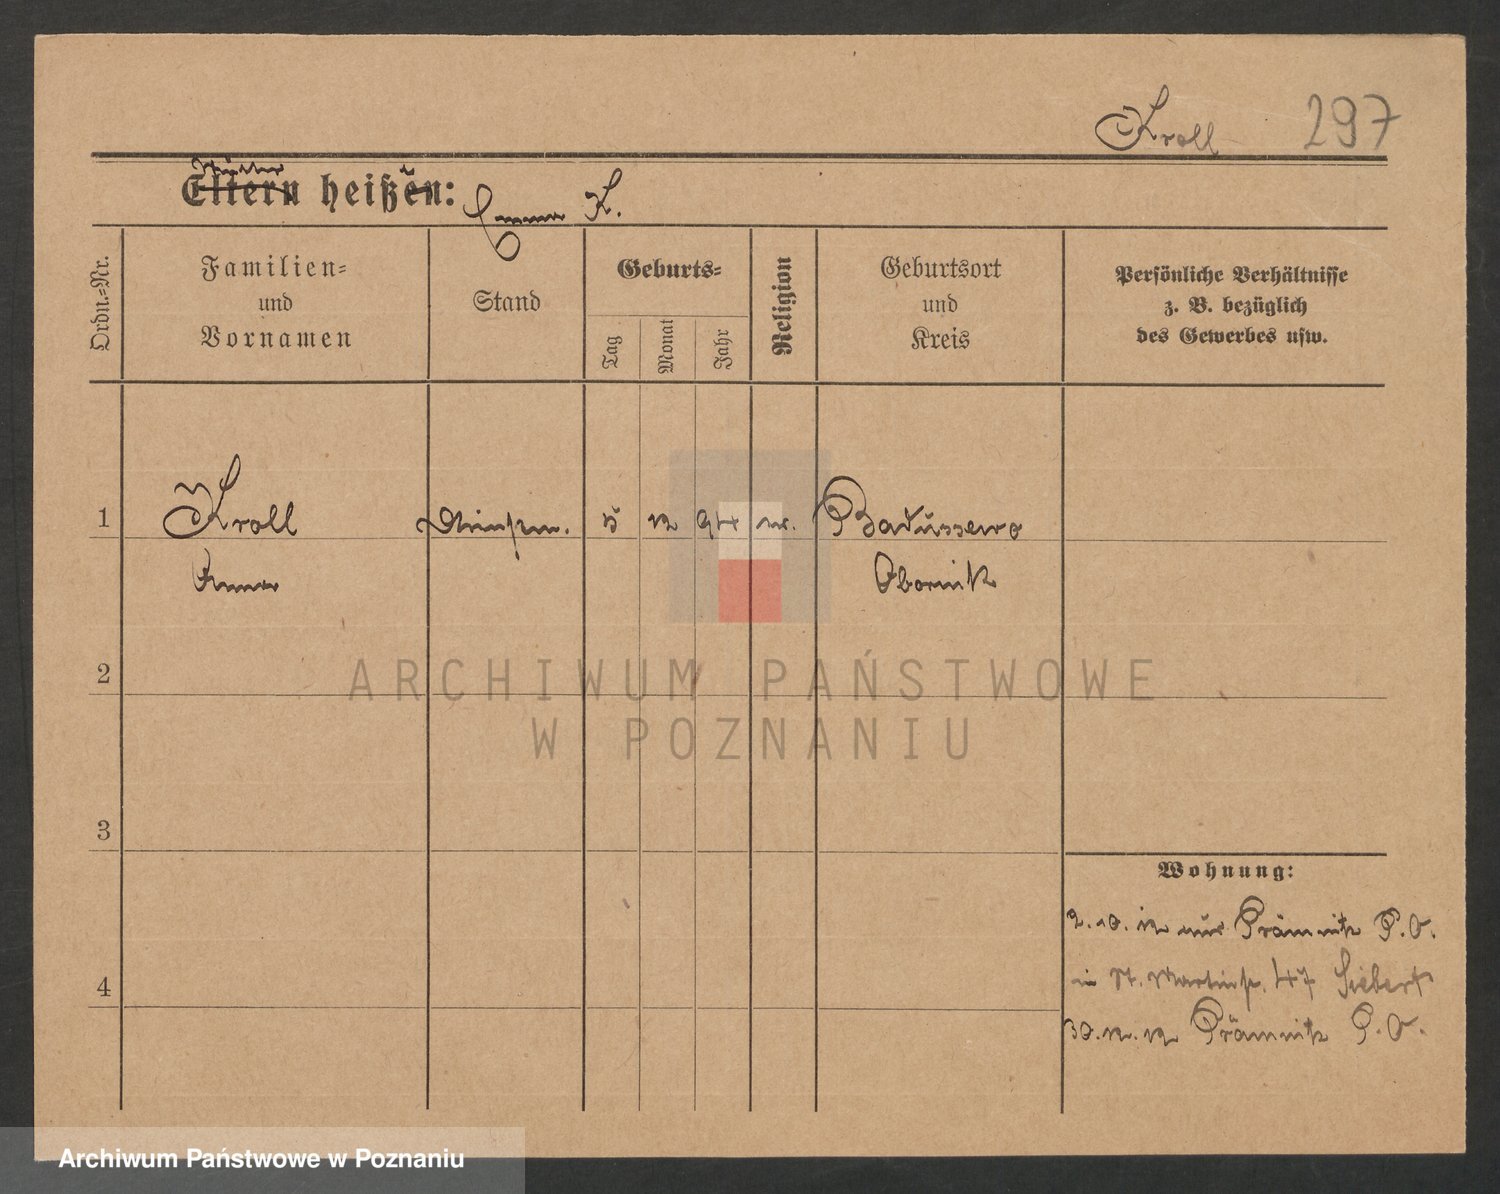 Kroll 297
Mutter
Eltern heißen: Emma K.
Ordn.=Nr.
Familien=
und
Vornamen
Stand
Geburts=
Tag
Monat
Jahr
Religion
Geburtsort
und
Kreis
Persönliche Verhältnisse
z. B. bezüglich
des Gewerbes usw.
1 Kroll 5 12 94 Badussewo
Anna Obornik
2
ARCHIWUM PAŃSTWOWE
W POZNANIU
3
Wohnung:
2.10. 12 aus Prämnitz P.O.
in St. Martinstr. 47 Siebert
4
30.12.12 Prämnitz P.O.
Archiwum Państwowe w Poznaniu